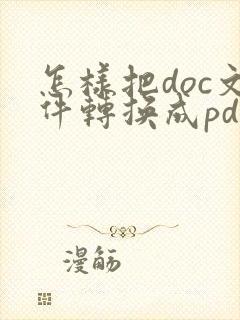 怎樣把doc文
件轉換成pd
漫觞